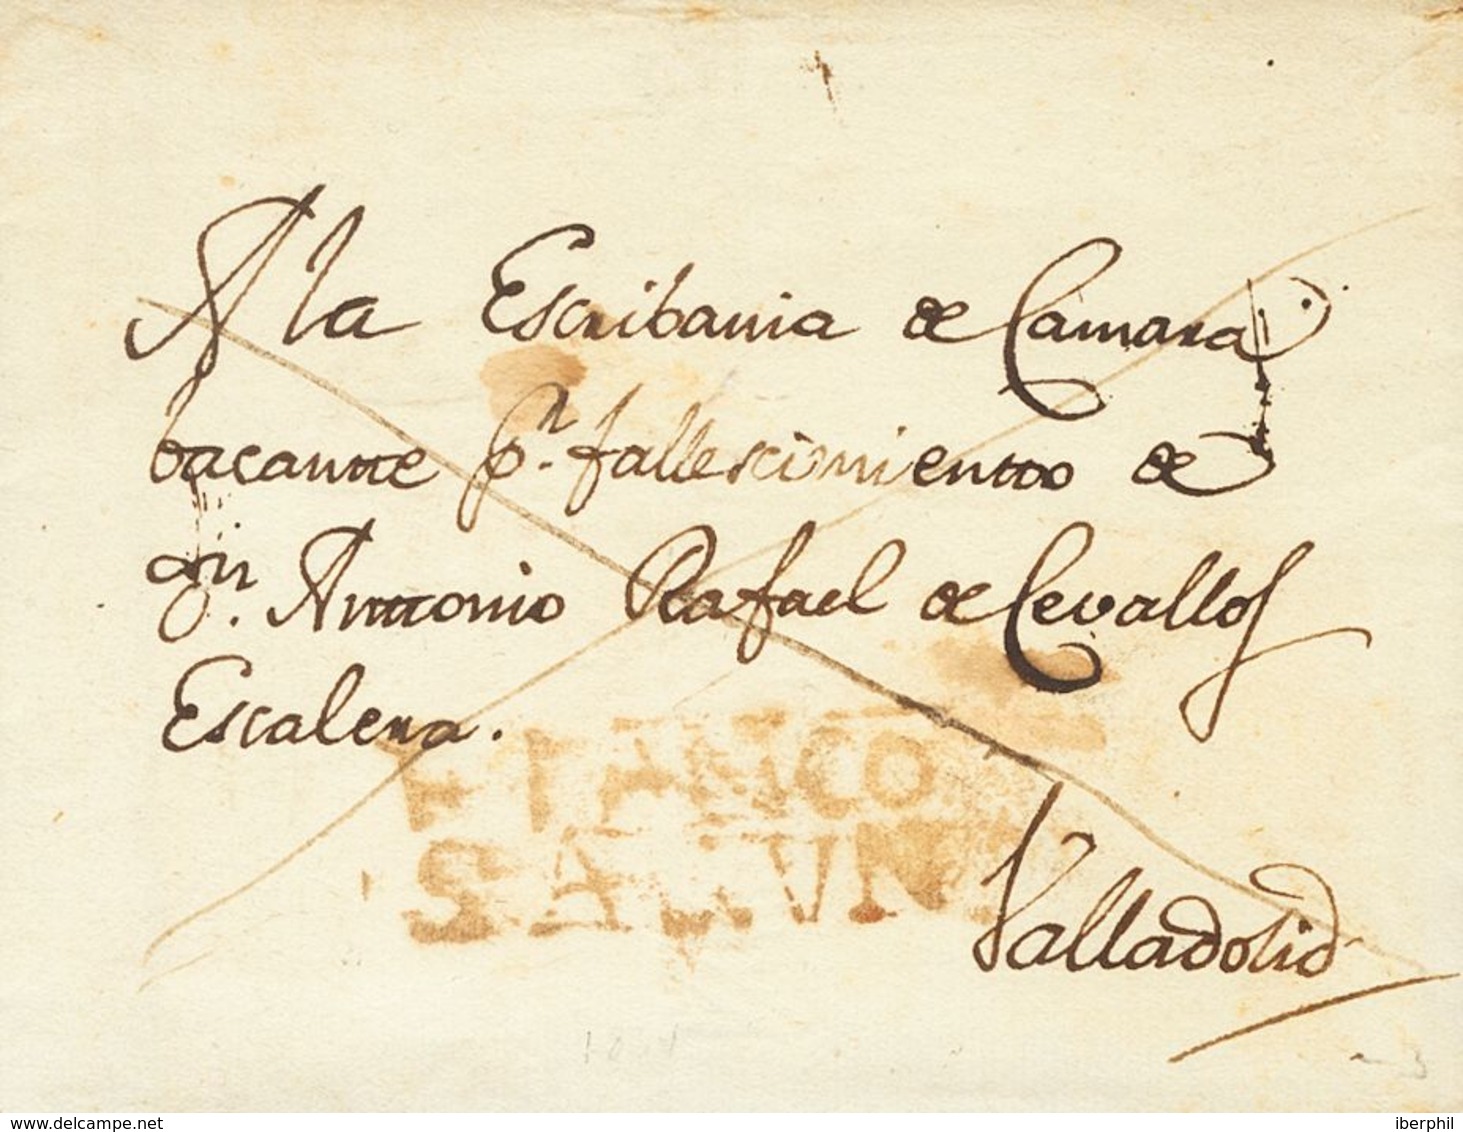 A la Escribania de Camara
bacantte p.r fallescimiento de
Dn. Anttonio Rafael de Cevallos
Escalera.
FRANCO
Valladolid
www.delcampe.net
iberphil